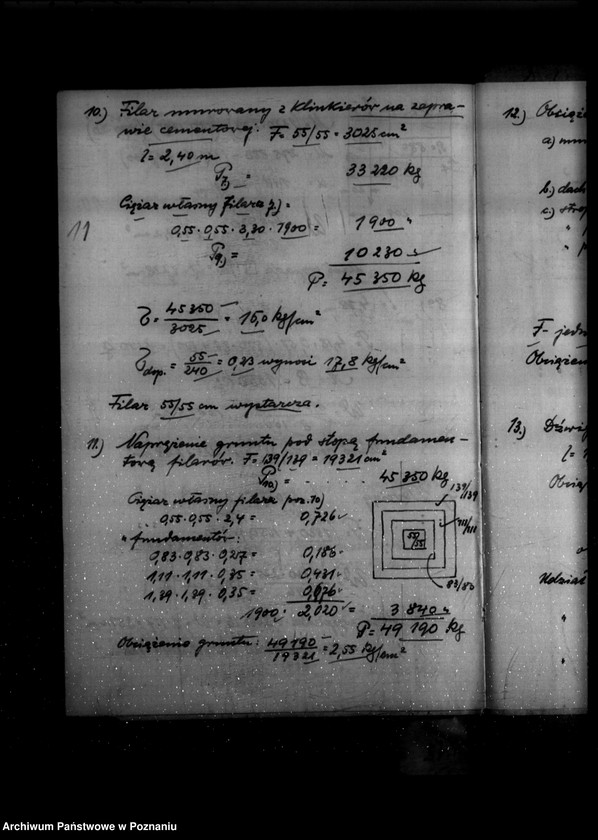 10.) Filar murowany z klinkierów na zapra-
wie cementowej. F = 55/55 = 3025 cm²
l = 2,40 m
P7.) = 33 220 kg
Ciężar własny filara 7.) =
0,55 · 0,55 · 3,30 · 1900 = 1 900 "
P9.) = 10 230 "
P = 45 350 kg
11
45350/3025 = 15,0 kg/cm²
dop. = 55/240 = 0,23 wynosi 17,8 kg/cm²
Filar 55/55 cm wystarcza.
11.) Naprężenie gruntu pod stopą fundamen-
tową filarów. F = 139/139 = 19321 cm²
P10.) = . . . . . . 45 350 kg
Ciężar własny filara poz. 10)
0,55 · 0,55 · 2,4 = 0,726
" fundamentów:
0,83 · 0,83 · 0,27 = 0,186
1,11 · 1,11 · 0,35 = 0,431
1,39 · 1,39 · 0,35 = 0,676
1900 · 2,020 = 3 840 "
P = 49 190 kg
Obciążenie gruntu: 49190/19321 = 2,55 kg/cm²
139/139
111/111
55/55
83/83
12.) Obcią
a)
b.) dach
c.) strop
F-
Obciążen
13.)
l =
Obcią
Archiwum Państwowe w Poznaniu